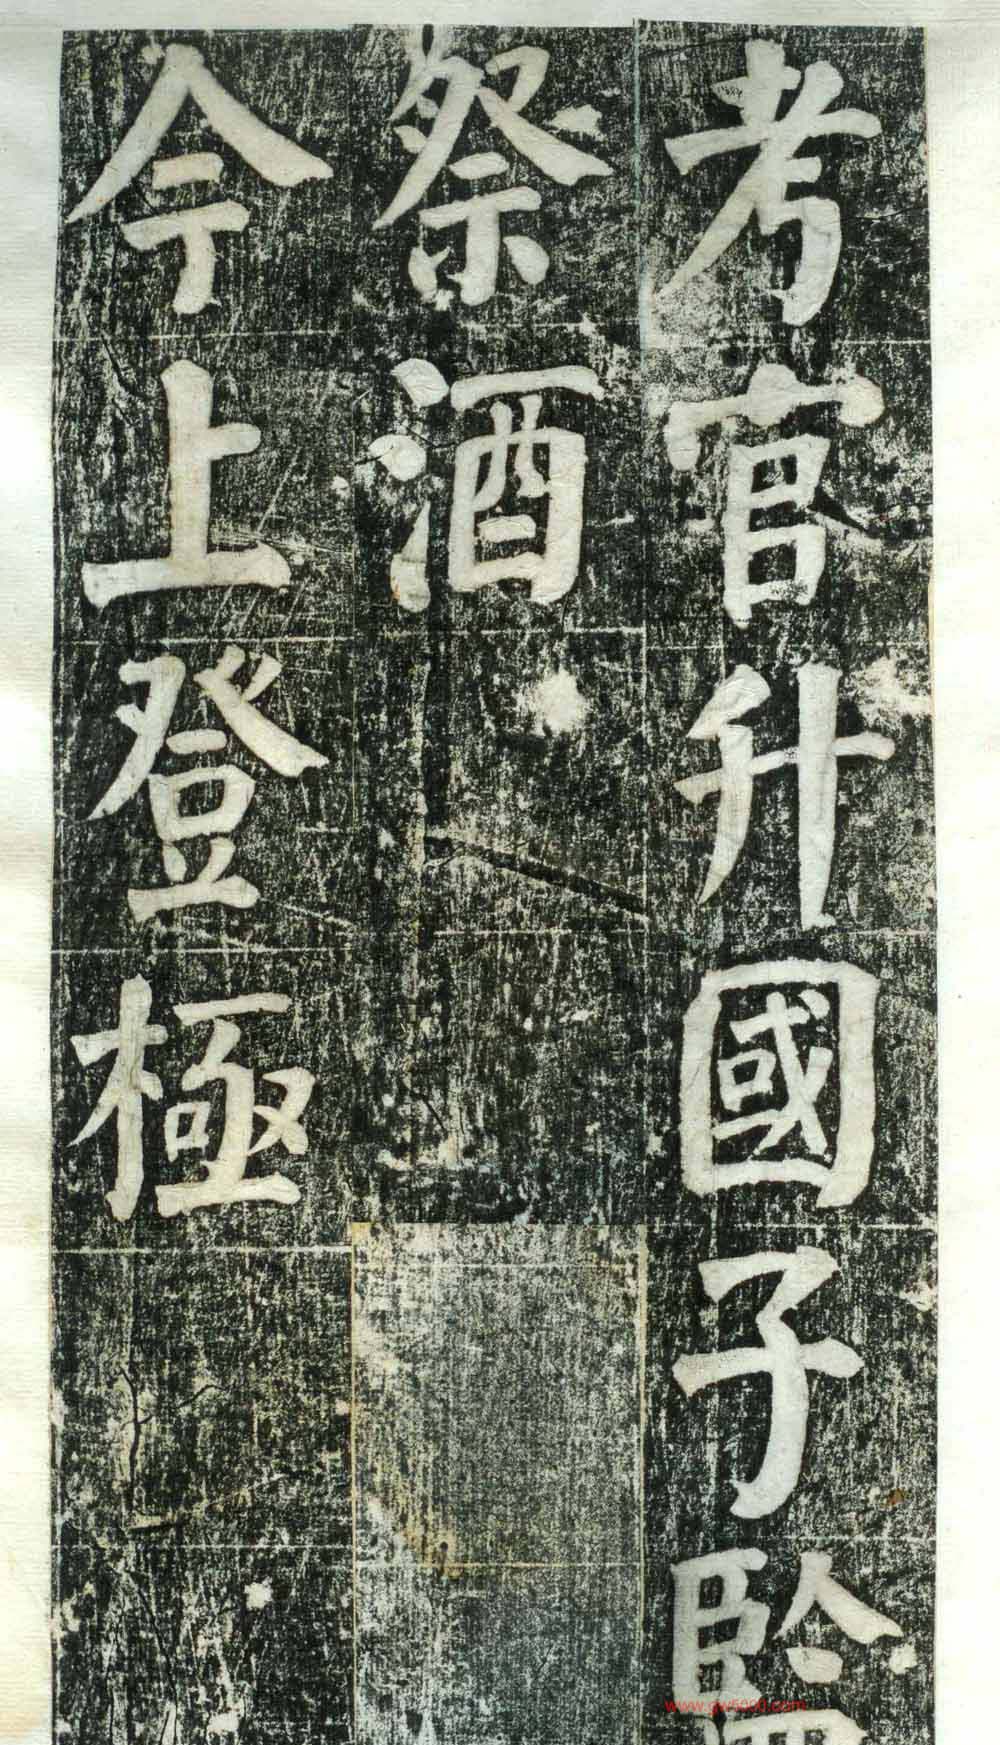 考官升國子監
祭酒
今上登極
www.gw5000.com